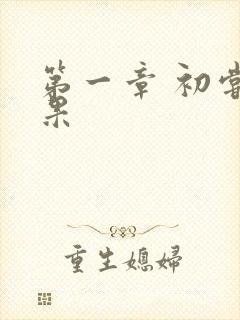 第一章 初尝
果
重生媳婦